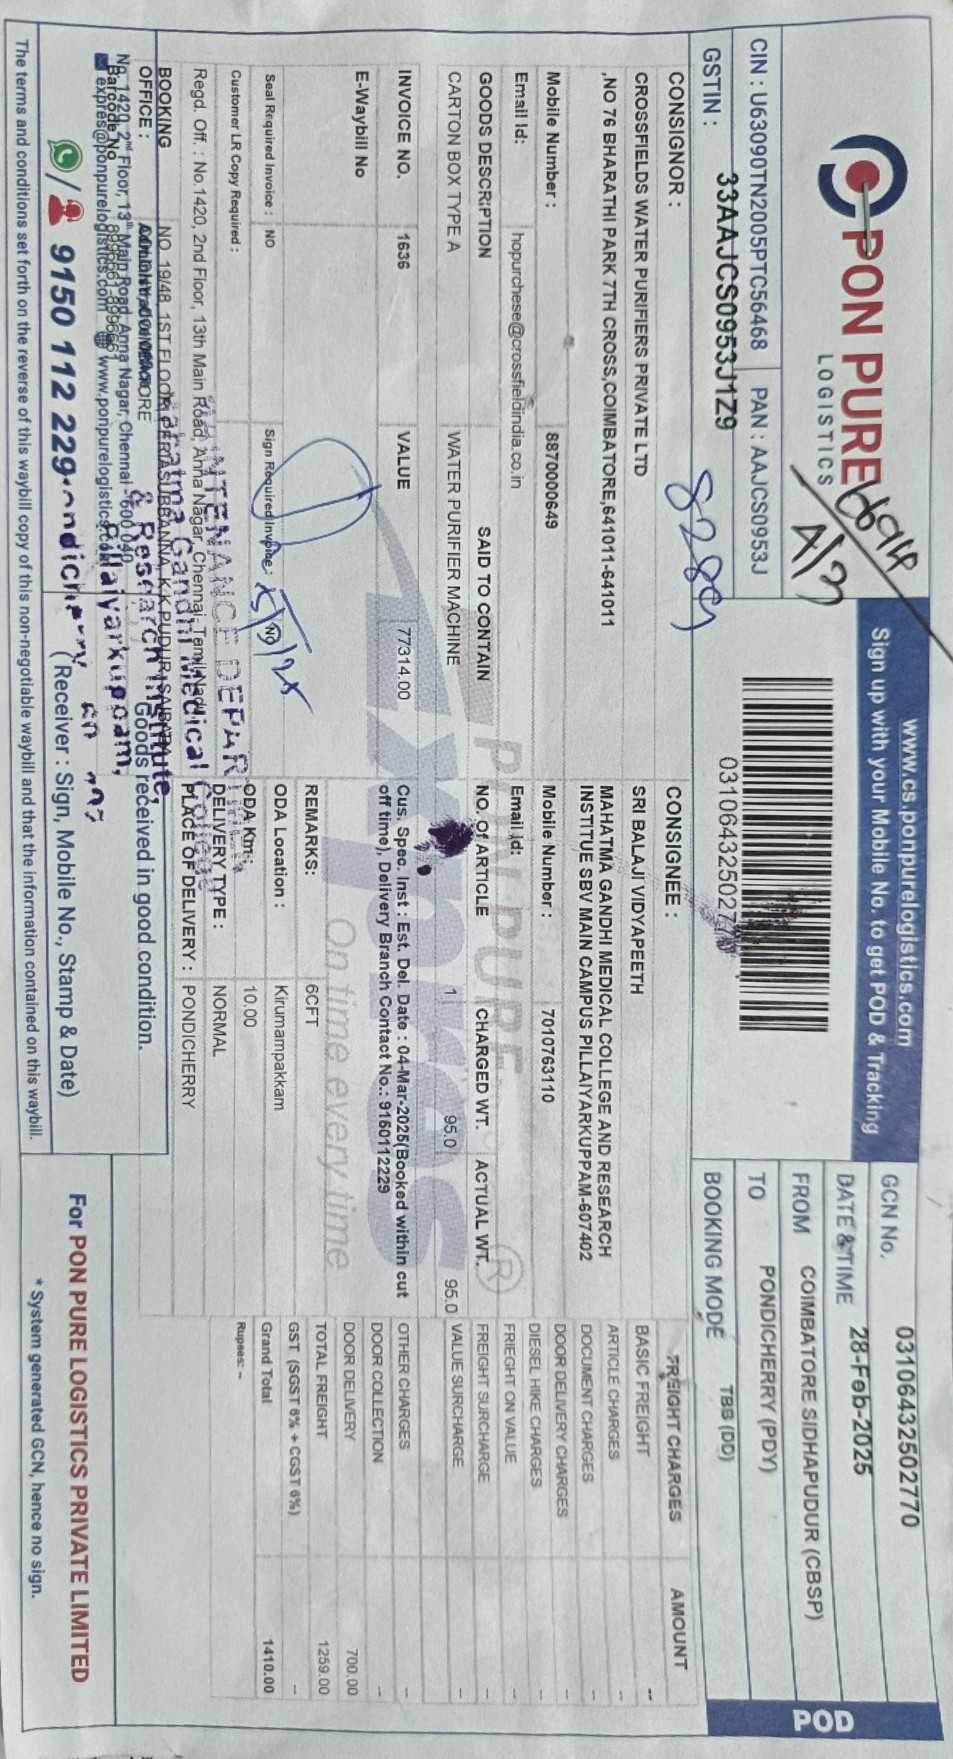 PON PURE
LOGISTICS
4/3
CIN : U63090TN2005PTC56468
PAN : AAJCS0953J
GSTIN : 33AAJCS0953J1Z9
www.cs.ponpurelogistics.com
Sign up with your Mobile No. to get POD & Tracking
POD
GCN No. 0310643250277​0
DATE & TIME 28-Feb-2025
FROM COIMBATORE SIDHAPUDUR (CBSP)
TO PONDICHERRY (PDY)
BOOKING MODE TBB (DD)
CONSIGNOR :
CROSSFIELDS WATER PURIFIERS PRIVATE LTD
,NO 76 BHARATHI PARK 7TH CROSS,COIMBATORE,641011-641011
Mobile Number : 8870000649
Email Id: hopurchese@crossfieldindia.co.in
CONSIGNEE :
SRI BALAJI VIDYAPEETH
MAHATMA GANDHI MEDICAL COLLEGE AND RESEARCH
INSTITUE SBV MAIN CAMPUS PILLAIYARKUPPAM-607402
Mobile Number : 7010763110
Email Id:
GOODS DESCRIPTION SAID TO CONTAIN NO. Of ARTICLE CHARGED WT. ACTUAL WT.
CARTON BOX TYPE A WATER PURIFIER MACHINE 1 95.0 95.0
INVOICE NO. 1636 VALUE 77314.00
Cus. Spec. Inst : Est. Del. Date : 04-Mar-2025(Booked within cut
off time), Delivery Branch Contact No.: 9150112229
E-Waybill No
PONPURE
Xpres
On time every time
REMARKS: 6CFT
Seal Required Invoice : NO
Sign Required Invoice : NO
ODA Location : Kirumampakkam
Customer LR Copy Required :
ODA Km : 10.00
DELIVERY TYPE : NORMAL
PLACE OF DELIVERY : PONDICHERRY
FREIGHT CHARGES AMOUNT
BASIC FREIGHT --
ARTICLE CHARGES --
DOCUMENT CHARGES --
DOOR DELIVERY CHARGES --
DIESEL HIKE CHARGES --
FRIEGHT ON VALUE --
FREIGHT SURCHARGE --
VALUE SURCHARGE --
OTHER CHARGES --
DOOR COLLECTION --
DOOR DELIVERY 700.00
TOTAL FREIGHT 1259.00
GST (SGST 6% + CGST 6%) --
Grand Total 1410.00
Rupees: --
Regd. Off. : No.1420, 2nd Floor, 13th Main Road, Anna Nagar, Chennai, Tamil Nadu
BOOKING
OFFICE :
NO 19/48, 1ST FLOOR, PERIASUBBANNA, K.K.PUDUR, SAIBABA
No. 1420, 2nd Floor, 13th Main Road, Anna Nagar, Chennai - 600 040
Barcode No
expres@ponpurelogistics.com www.ponpurelogistics.com
9150 112 229
Mahatma Gandhi Medical College
& Research Institute,
Pillaiyarkuppam,
Goods received in good condition.
( Receiver : Sign, Mobile No., Stamp & Date)
For PON PURE LOGISTICS PRIVATE LIMITED
* System generated GCN, hence no sign.
The terms and conditions set forth on the reverse of this waybill copy of this non-negotiable waybill and that the information contained on this waybill.